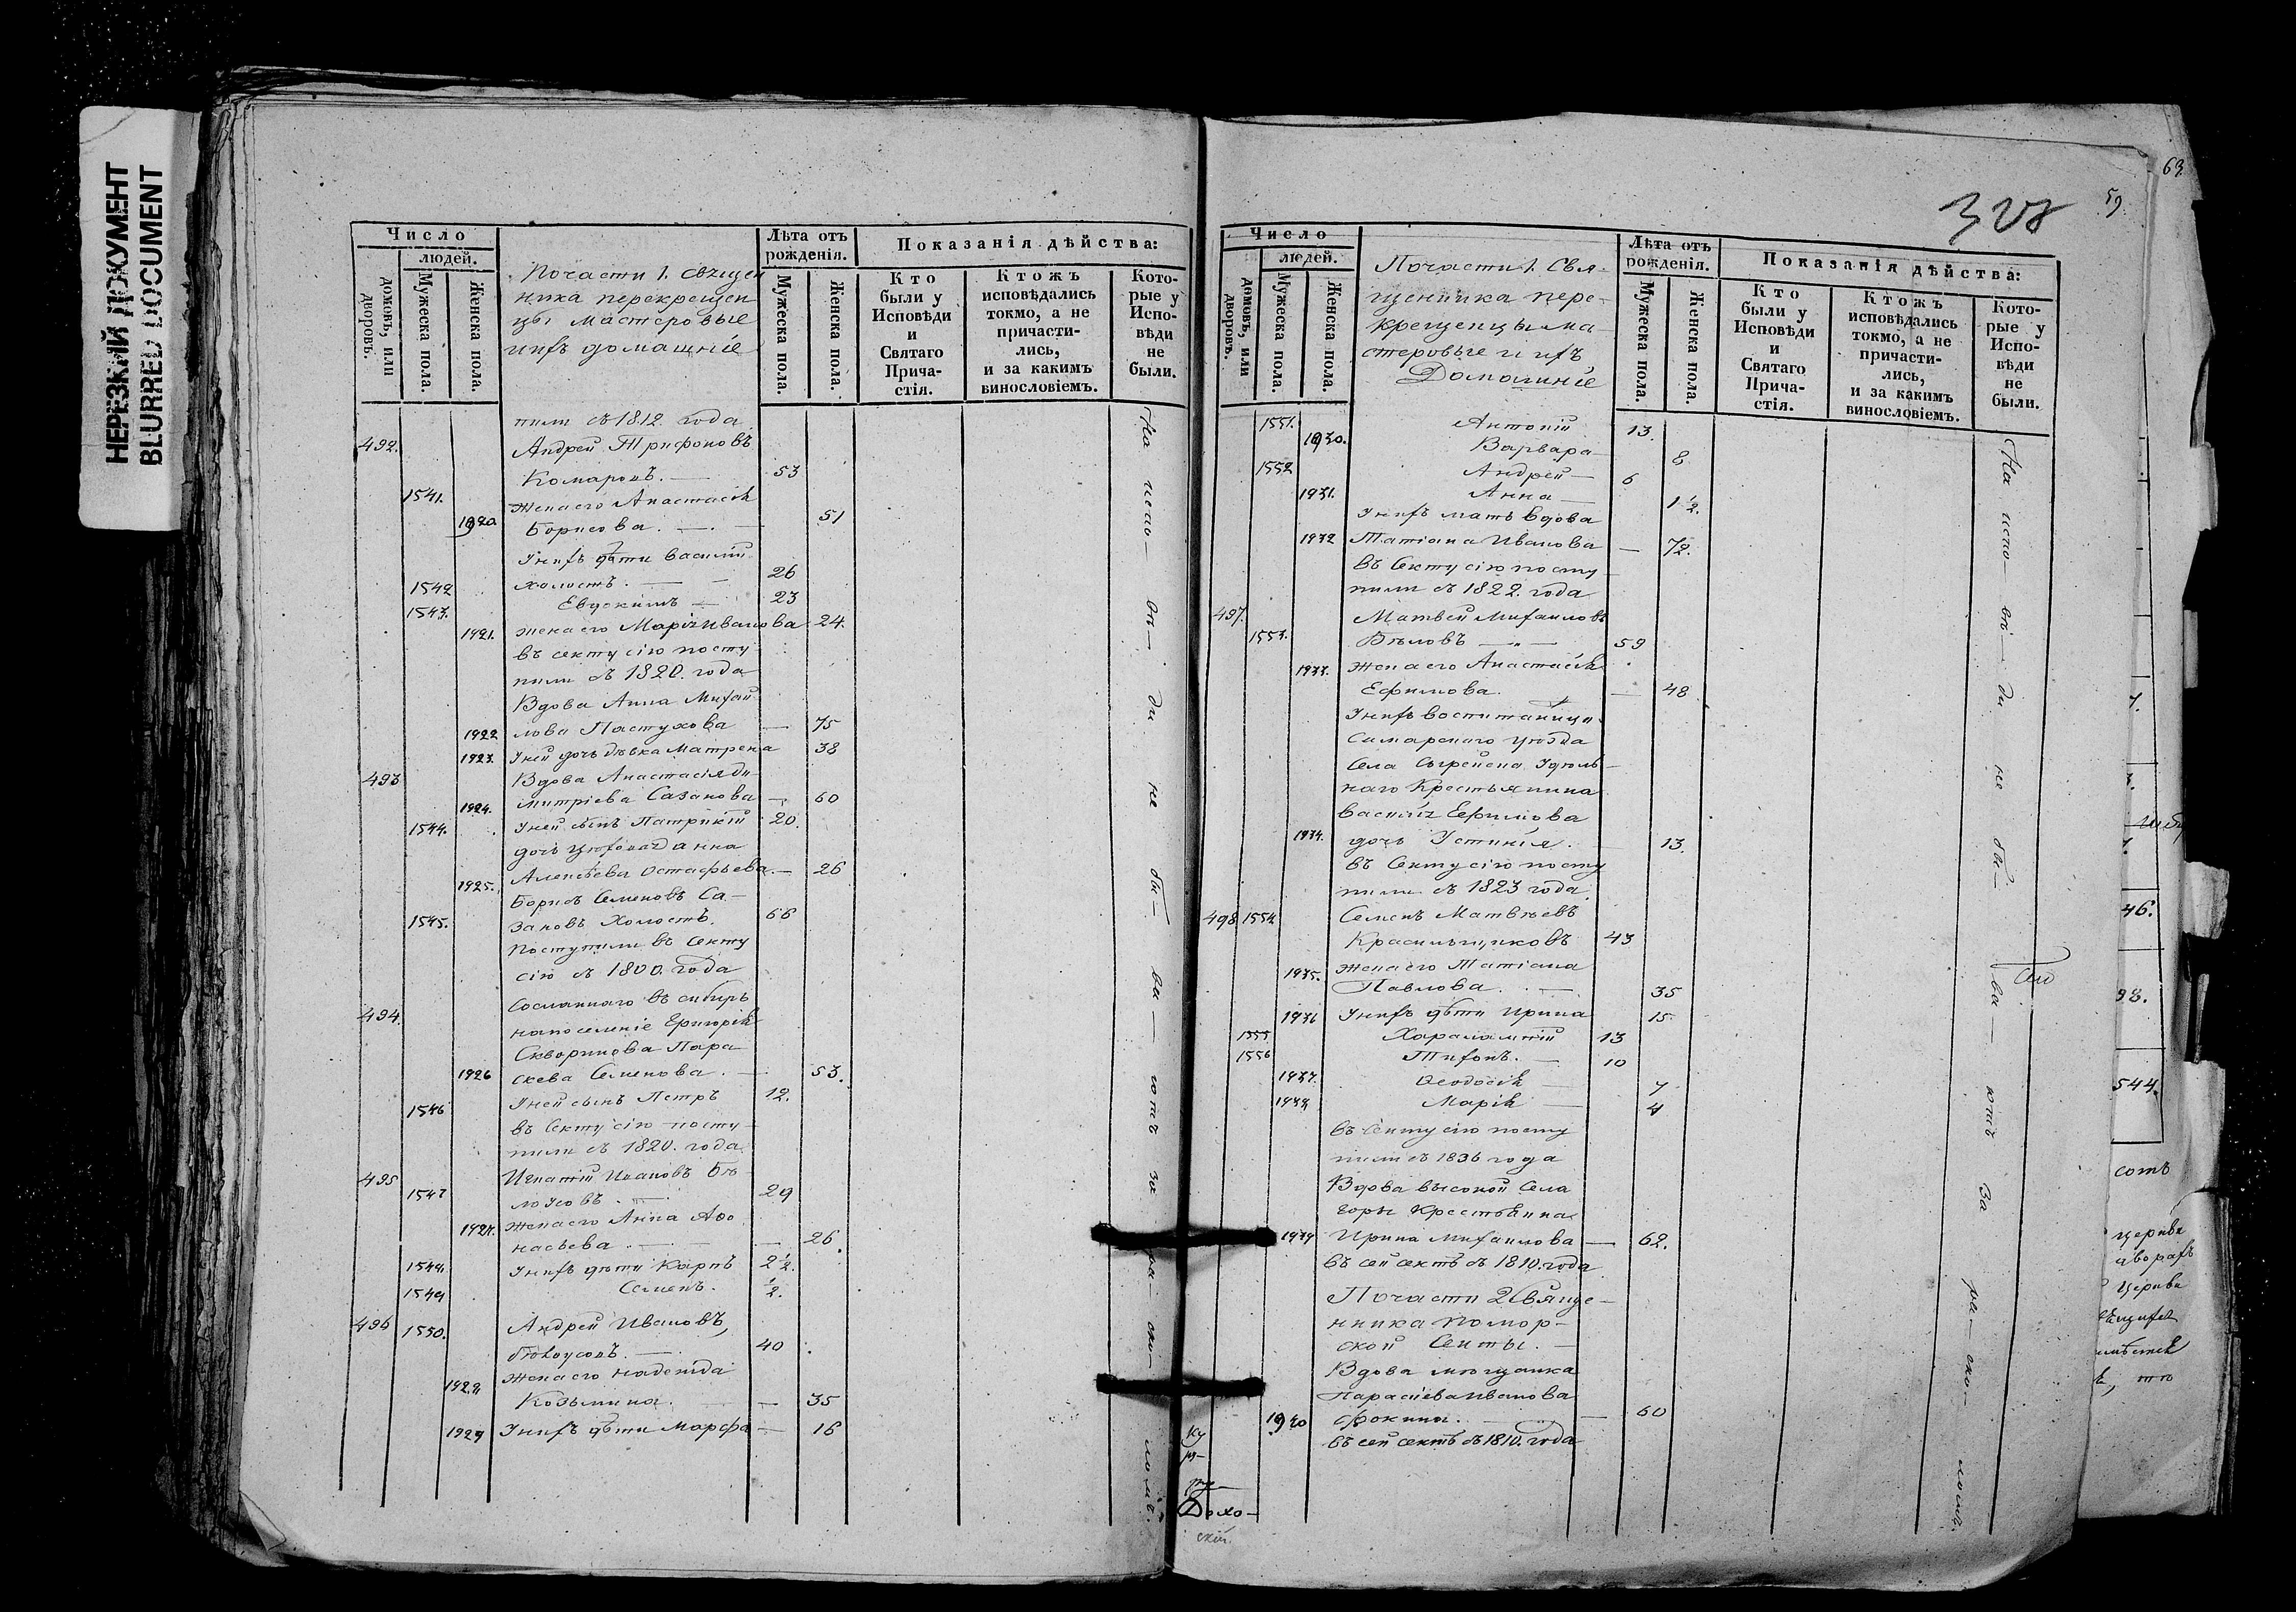 НЕРЕЗКИЙ ДОКУМЕНТ
BLURRED DOCUMENT
Число
людей.
домовъ, или дворовъ.
Мужеска пола.
Женска пола.
По части 1. Священ
ника перекрещен
цы мастеровые
и ихъ домашніе
Лѣта отъ рожденія.
Мужеска пола.
Женска пола.
Показанія дѣйства:
Кто были у Исповѣди и Святаго Прича- стія.
Ктожъ исповѣдались токмо, а не причасти- лись, и за какимъ винословіемъ.
Кото- рые у Испо- вѣди не были.
пили съ 1812 года
492. Андрей Трифоновъ
1541. Комаровъ. 53
жена его Анастасія
1920 Борисова. 51
У нихъ дѣти Василій
1542 холостъ. 26
1543. Евдокимъ 23
1921. жена его Марія Иванова 24.
въ секту сію посту
пили съ 1820. года
Вдова Анна Михай
1922 лова Пастухова 75
1923. У ней дочь дѣвка Матрена 38
493 Вдова Анастасія Ди
1924. митріева Сазанова 60
1544. У ней сынъ Патрикій 20.
Анна
1925. Алексѣева Остафьева 26
Борисъ Семеновъ Са
1545. зановъ Холостъ. 66
Поступили въ Секту
сію съ 1800. года
494. Сосланнаго въ сибирь
на поселеніе Григорія
Скворцова Пара
1926 скева Семенова. 53.
1546 У ней сынъ Петръ 12.
въ Секту сію посту
пили съ 1820. года
495 Игнатій Ивановъ Бѣ
1547 лоусовъ. 29
1927. жена его Анна Афо
насьева 26.
1548. У нихъ дѣти Карпъ 2 1/2.
1549 Семенъ. 1/2.
496 1550. Андрей Ивановъ,
Бѣлоусовъ. 40
жена его Надежда
1928 Козьмина. 35
1929 У нихъ дѣти Марфа 16
На испо- вѣ- ди не бы- ва- ютъ за ра- ско- ломъ.
328
59
63
Число
людей.
домовъ, или дворовъ.
Мужеска пола.
Женска пола.
По части 1. Свя-
щенника пере-
крещенцы ма-
стеровые и ихъ
Домашніе
Лѣта отъ рожденія.
Мужеска пола.
Женска пола.
Показанія дѣйства:
Кто были у Исповѣди и Святаго Прича- стія.
Ктожъ исповѣдались токмо, а не причасти- лись, и за какимъ винословіемъ.
Кото- рые у Испо- вѣди не были.
1551. Антоній 13.
1930. Варвара 8
1552 Андрей 6
1931. Анна 1 1/2.
У нихъ мать вдова
1932 Татіана Иванова 72.
въ Секту сію посту
пили съ 1822. года
497. Матвей Михайловъ
1553. Бѣловъ 59
1933. жена его Анастасія
Ефимова. 48
У нихъ воспитаница
Самарскаго уѣзда
Села Удѣль-
наго Крестьянина
Василія Ефимова
1934. дочь Устинія. 13.
въ Секту сію посту
пили съ 1823 года
498 1554 Семенъ Матвѣевъ
Красильщиковъ 43
1935. жена его Татіана
Павлова. 35
1936 У нихъ дѣти Ирина 15.
1555 Харалампій 13
1556 Тихонъ. 10
1937 Ѳеодосія 7
1938 Марія 4
въ Секту сію посту
пили съ 1836 года
Вдова высокой Села
горы Крестьянина
1939 Ирина Михайлова 62.
въ сей сектѣ съ 1810. года
По части 2 Свяще-
нника Помор-
ской Секты.
Вдова мѣщанка
Параскева Иванова
1940 Фокина. 60
въ сей сектѣ съ 1810. года
На испо вѣ- ди не бы- ва- ютъ за ра- ско- ломъ.
46.
98.
544.
сотъ
церкви
дворахъ
церкви